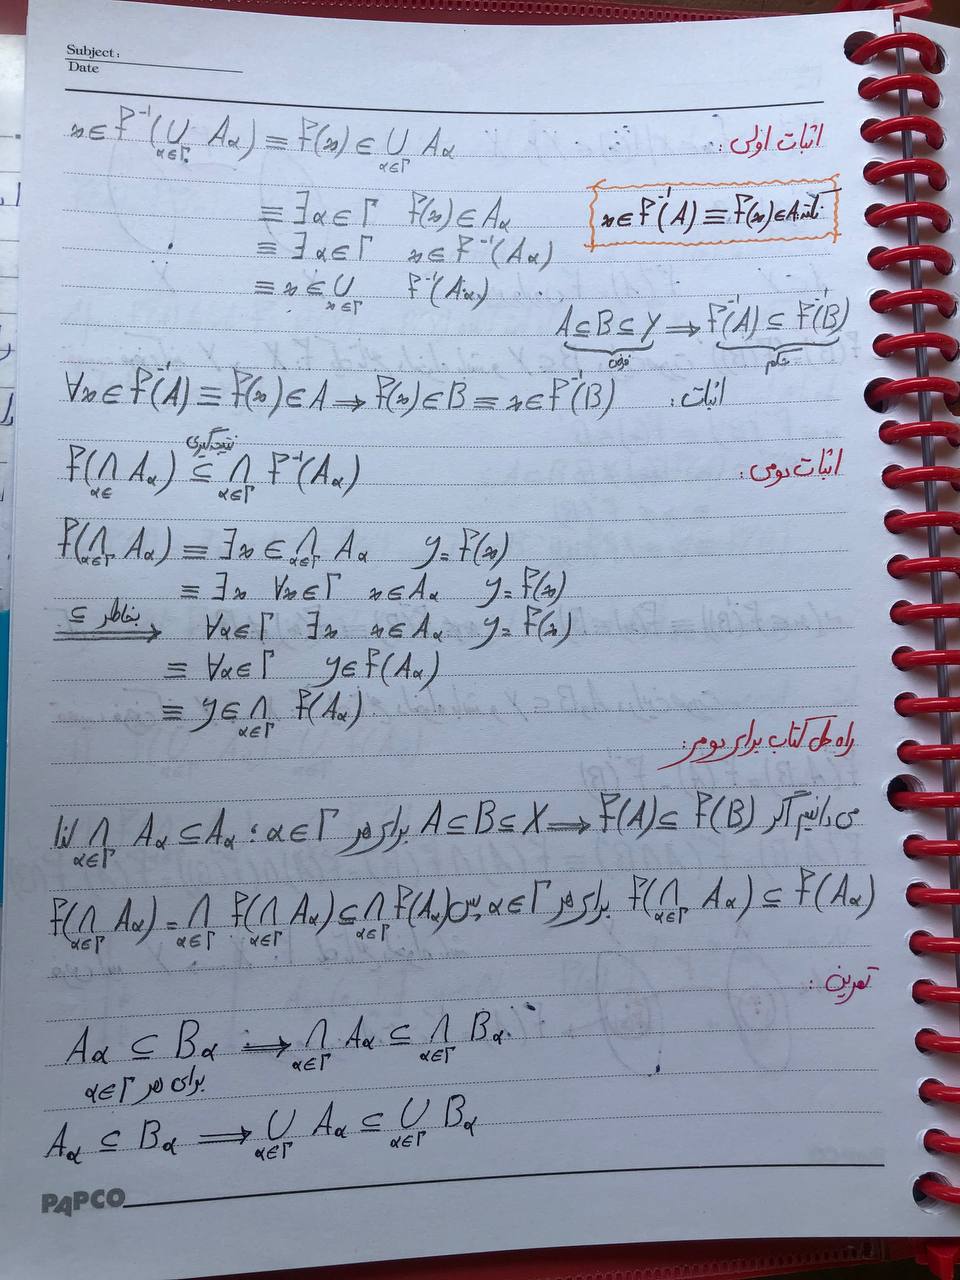 Subject:
Date
اثبات اولی:
x∈f⁻¹(⋃_{α∈Γ} Aα) ≡ f(x)∈ ⋃_{α∈Γ} Aα
≡ ∃α∈Γ f(x)∈Aα
نکته: x∈f⁻¹(A) ≡ f(x)∈A
≡ ∃α∈Γ x∈f⁻¹(Aα)
≡ x∈ ⋃_{x∈Γ} f⁻¹(Aα)
A⊆B⊆Y ⇒ f⁻¹(A)⊆f⁻¹(B)
فرض حکم
اثبات: ∀x∈f⁻¹(A) ≡ f(x)∈A ⇒ f(x)∈B ≡ x∈f⁻¹(B)
اثبات دومی:
نتیجه‌گیری
f(⋂_{α∈} Aα) ⊆ ⋂_{α∈Γ} f⁻¹(Aα)
f(⋂_{α∈Γ} Aα) ≡ ∃x∈ ⋂_{α∈Γ} Aα y=f(x)
≡ ∃x ∀x∈Γ x∈Aα y=f(x)
بخاطر ⊆ ⇒ ∀α∈Γ ∃x x∈Aα y=f(x)
≡ ∀α∈Γ y∈f(Aα)
≡ y∈ ⋂_{α∈Γ} f(Aα)
راه حل کتاب برای دومی:
می دانیم اگر A⊆B⊆X ⇒ f(A)⊆f(B) برای هر α∈Γ : ⋂_{α∈Γ} Aα⊆Aα لذا
f(⋂_{α∈Γ} Aα) ⊆ f(Aα) برای هر α∈Γ پس f(⋂_{α∈Γ} Aα) = ⋂_{α∈Γ} f(⋂_{α∈Γ} Aα) ⊆ ⋂_{α∈Γ} f(Aα)
تمرین:
Aα ⊆ Bα ⇒ ⋂_{α∈Γ} Aα ⊆ ⋂_{α∈Γ} Bα
برای هر α∈Γ
Aα ⊆ Bα ⇒ ⋃_{α∈Γ} Aα ⊆ ⋃_{α∈Γ} Bα
PAPCO